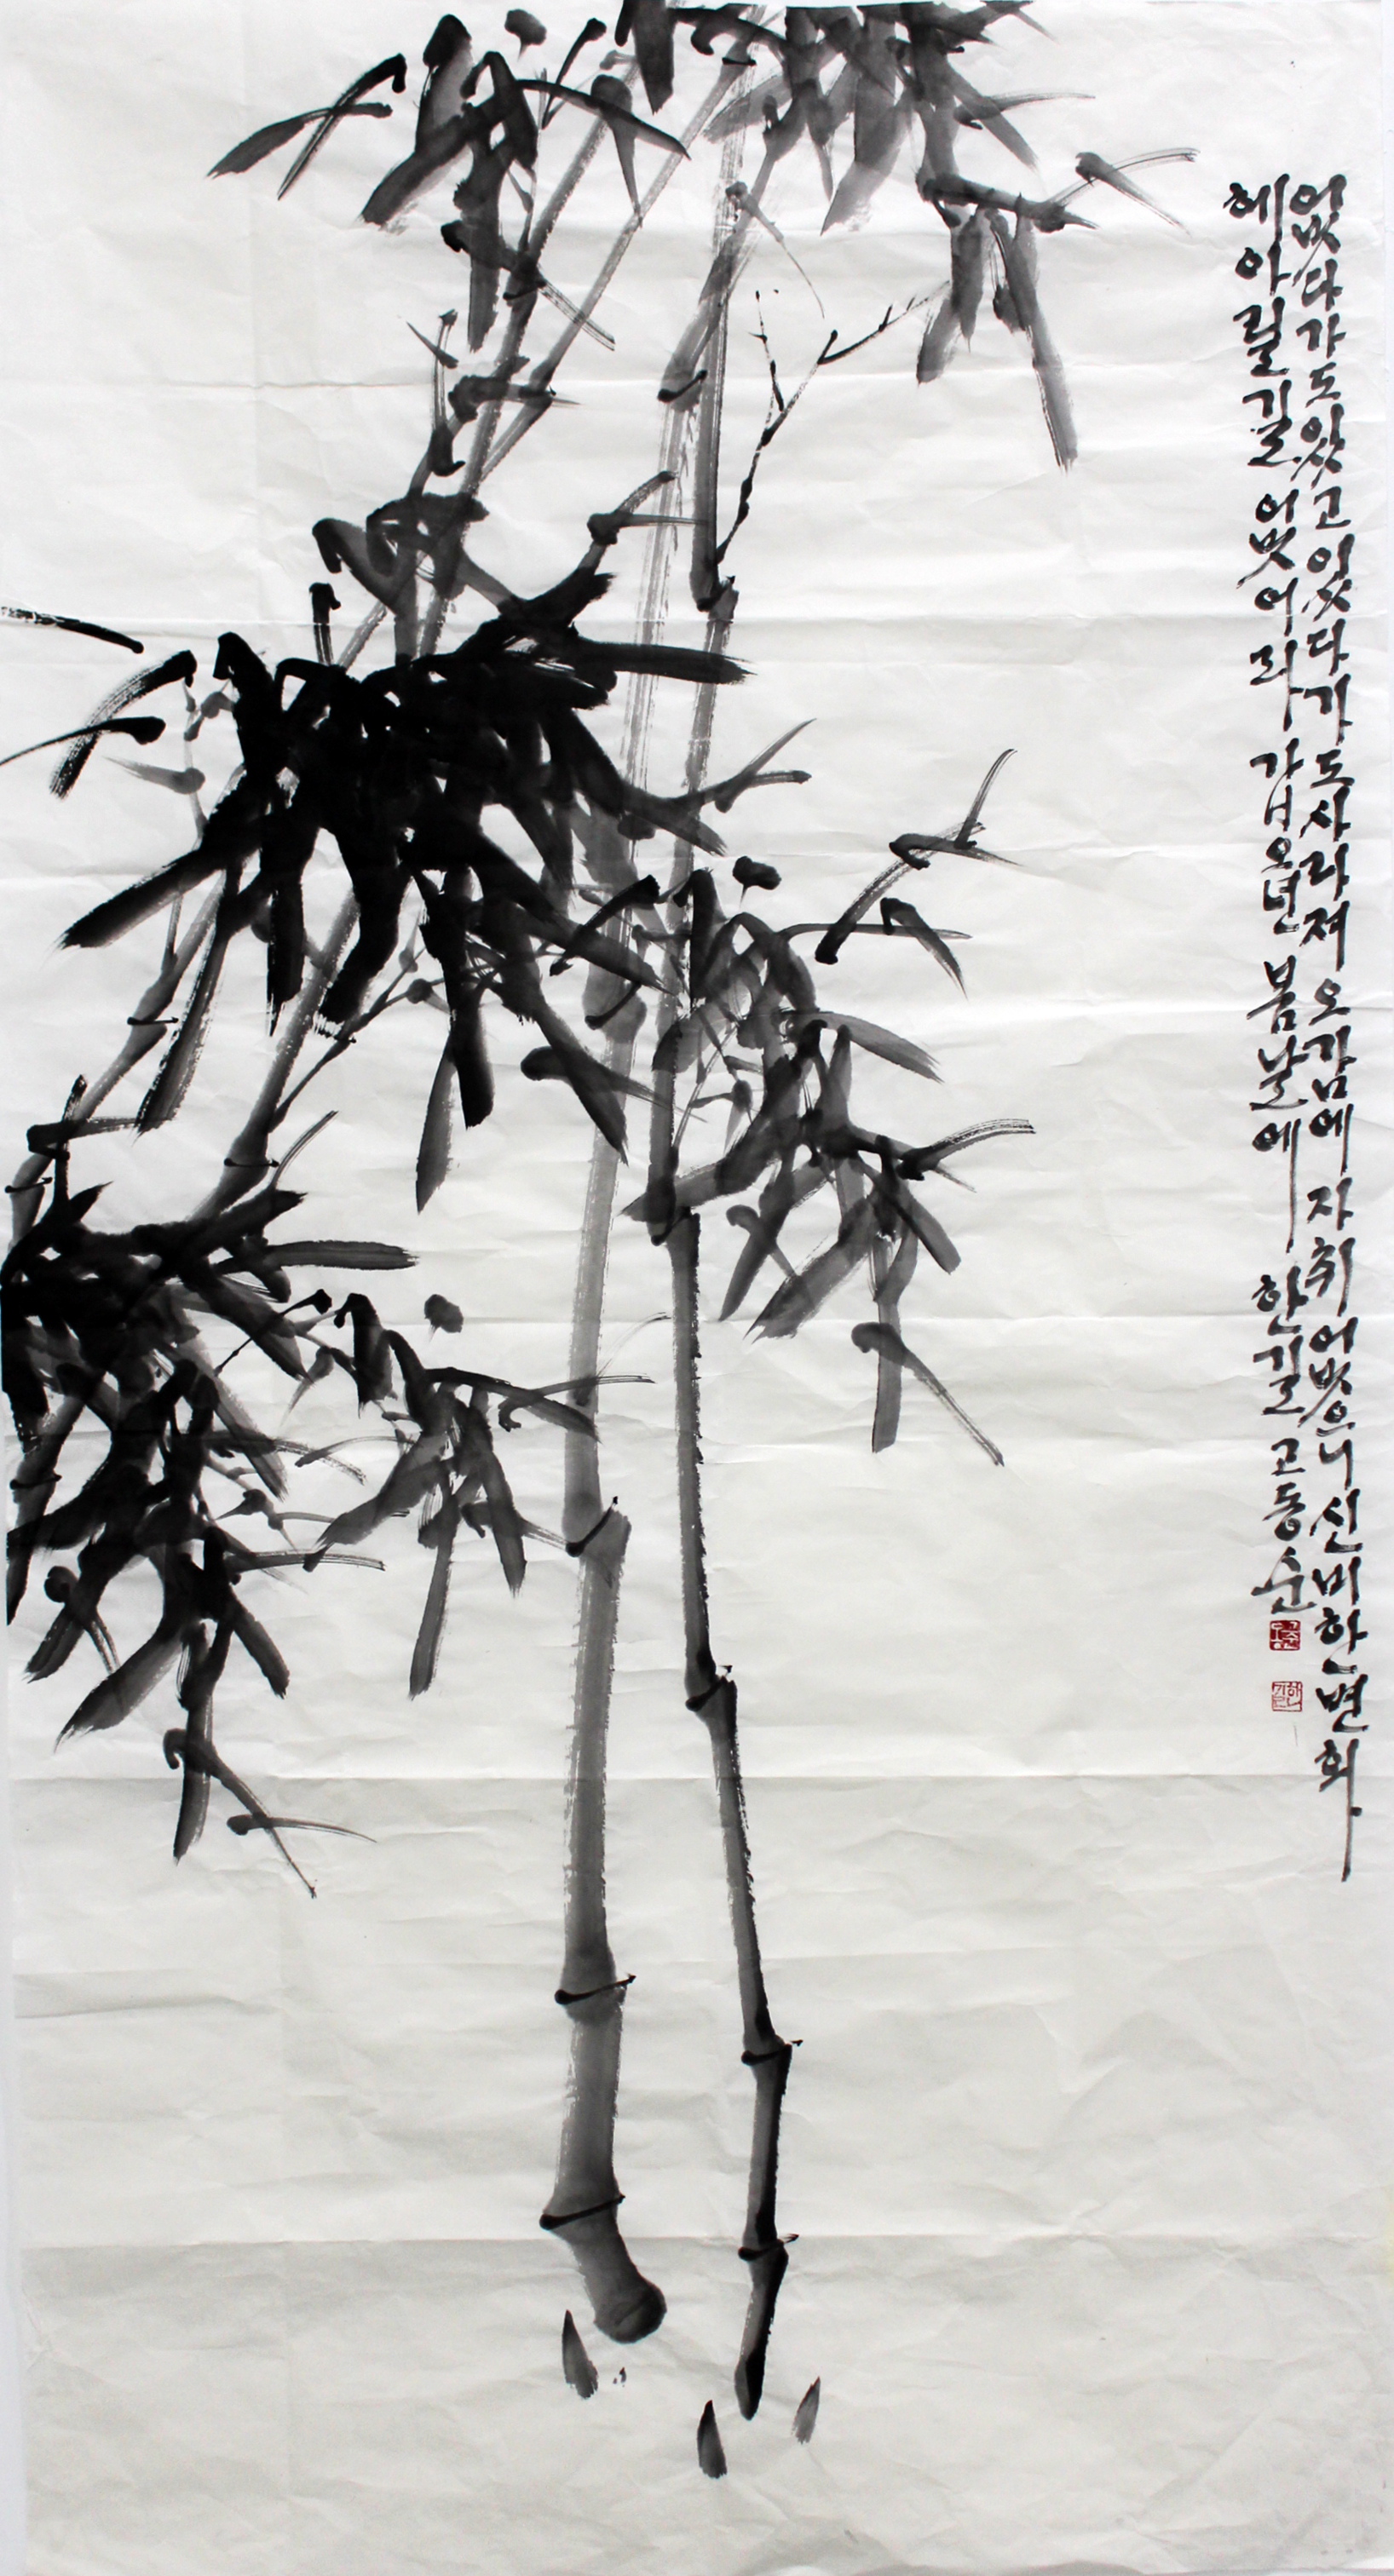 없다가도 있고 있다가도 사라져 오감에 자취 없으니 신비한 변화
헤아릴 길 없어라 갑오년 봄날에 한길 고동순
한길